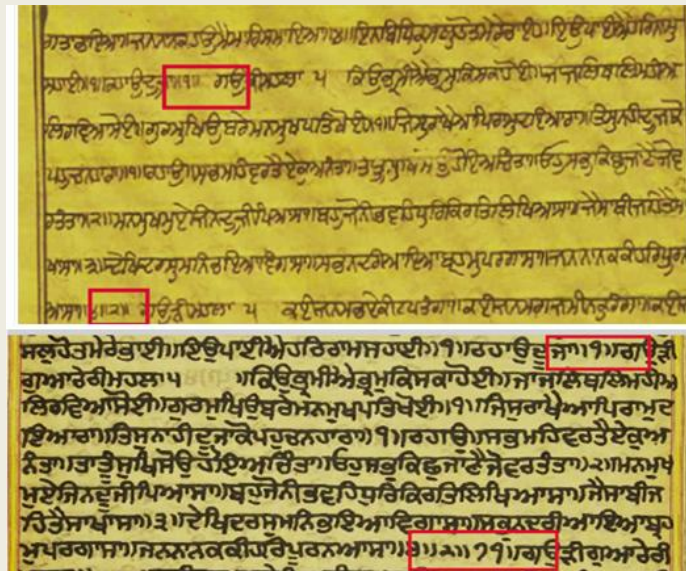 ਗਤਾਗਇਆ॥ਜਨਨਾਨਕਹਉਮੈਮਾਰਿਸਮਾਇਆ॥੪॥ਇਨਬਿਧਿਕੁਸਲਹੋਤਮੇਰੇਭਾਈ॥ਇਉਪਾਈਐਹਰਿਰਾਮ
ਸਹਾਈ॥੧॥ਰਹਾਉਦੂਜਾ॥੧॥ ਗਉੜੀਮਹਲਾ ੫ ਕਿਉਭ੍ਰਮੀਐਭ੍ਰਮੁਕਿਸਕਾਹੋਈ॥ਜਾਜਲਿਥਲਿਮਹੀਅ
ਲਿਰਵਿਆਸੋਈ॥ਗੁਰਮੁਖਿਉਬਰੇਮਨਮੁਖਪਤਿਖੋਈ॥੧॥ਜਿਸੁਰਾਖੈਆਪਿਰਾਮੁਦਇਆਰਾ॥ਤਿਸੁਨਹੀਦੂਜਾਕੋ
ਪਹੁਚਨਹਾਰਾ॥੧॥ਰਹਾਉ॥ਸਭਮਹਿਵਰਤੈਏਕੁਅਨੰਤਾ॥ਤਾਤੂੰਸੁਖਿਸੋਉਹੋਇਅਚਿੰਤਾ॥ਓਹੁਸਭੁਕਿਛੁਜਾਣੈਜੋਵ
ਰਤੰਤਾ॥੨॥ਮਨਮੁਖਮੁਏਜਿਨਦੂਜੀਪਿਆਸਾ॥ਬਹੁਜੋਨੀਭਵਹਿਧੁਰਿਕਿਰਤਿਲਿਖਿਆਸਾ॥ਜੈਸਾਬੀਜਹਿਤੈਸਾ
ਖਾਸਾ॥੩॥ਦੇਖਿਦਰਸੁਮਨਿਭਇਆਵਿਗਾਸਾ॥ਸਭੁਨਦਰੀਆਇਆਬ੍ਰਹਮੁਪਰਗਾਸਾ॥ਜਨਨਾਨਕਕੀਹਰਿਪੂਰਨ
ਆਸਾ॥੪॥੨॥ ਗਉੜੀਮਹਲਾ ੫ ਕਈਜਨਮਭਏਕੀਟਪਤੰਗਾ॥ਕਈਜਨਮਗਜਮੀਨਕੁਰੰਗਾ॥ਕਈਜ
ਸਲਹੋਤਮੇਰੇਭਾਈ॥ਇਉਪਾਈਐਹਰਿਰਾਮਸਹਾਈ॥੧॥ਰਹਾਉਦੂਜਾ॥੧॥ਗਉੜੀ
ਗੁਆਰੇਰੀਮਹਲਾ੫ ॥ਕਿਉਭ੍ਰਮੀਐਭ੍ਰਮੁਕਿਸਕਾਹੋਈ॥ਜਾਜਲਿਥਲਿਮਹੀਅ
ਲਿਰਵਿਆਸੋਈ॥ਗੁਰਮੁਖਿਉਬਰੇਮਨਮੁਖਪਤਿਖੋਈ॥੧॥ਜਿਸੁਰਾਖੈਆਪਿਰਾਮੁਦ
ਇਆਰਾ॥ਤਿਸੁਨਾਹੀਦੂਜਾਕੋਪਹੁਚਨਹਾਰਾ॥੧॥ਰਹਾਉ॥ਸਭਮਹਿਵਰਤੈਏਕੁਅ
ਨੰਤਾ॥ਤਾਤੂੰਸੁਖਿਸੋਉਹੋਇਅਚਿੰਤਾ॥ਓਹੁਸਭੁਕਿਛੁਜਾਣੈਜੋਵਰਤੰਤਾ॥੨॥ਮਨਮੁਖ
ਮੁਏਜਿਨਦੂਜੀਪਿਆਸਾ॥ਬਹੁਜੋਨੀਭਵਹਿਧੁਰਿਕਿਰਤਿਲਿਖਿਆਸਾ॥ਜੈਸਾਬੀਜ
ਹਿਤੈਸਾਖਾਸਾ॥੩॥ਦੇਖਿਦਰਸੁਮਨਿਭਇਆਵਿਗਾਸਾ॥ਸਭੁਨਦਰੀਆਇਆਬ੍ਰਹ
ਮੁਪਰਗਾਸਾ॥ਜਨਨਾਨਕਕੀਹਰਿਪੂਰਨਆਸਾ॥੪॥੨॥੭੧॥ਗਉੜੀਗੁਆਰੇਰੀ